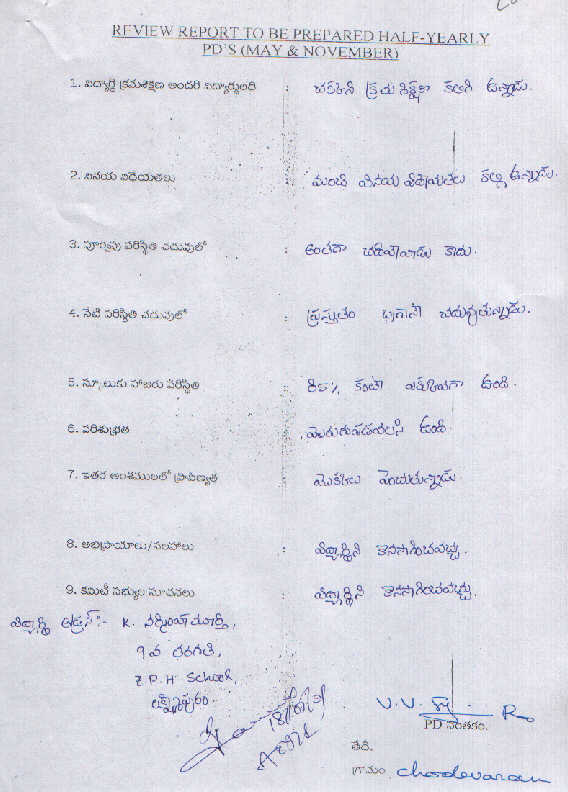 REVIEW REPORT TO BE PREPARED HALF-YEARLY
PD'S (MAY & NOVEMBER)
1. విద్యార్థి క్రమశిక్షణ అందరి విద్యార్థులది : క్రమశిక్షణ కలిగి ఉన్నాడు.
2. వినయ విధేయతలు : మంచి వినయ విధేయతలు కల్గి ఉన్నాడు.
3. పూర్వపు పరిస్థితి చదువులో : అంతగా చదివేవాడు కాదు.
4. నేటి పరిస్థితి చదువులో : ప్రస్తుతం బాగానే చదువుతున్నాడు.
5. స్కూలుకు హాజరు పరిస్థితి : కంటే ఎక్కువగా ఉంది.
6. పరిశుభ్రత : మెరుగుపడవలసి ఉంది.
7. ఇతర అంశములలో ప్రావీణ్యత : మొక్కలు పెంచుతున్నాడు.
8. అభిప్రాయాలు/సలహాలు : విద్యార్థిని కొనసాగించవచ్చు.
9. కమిటీ సభ్యుల సూచనలు : విద్యార్థిని కొనసాగించవచ్చు.
విద్యార్థి అడ్రస్:- K. నర్సింహామూర్తి,
9 వ తరగతి,
Z.P.H School,
లక్ష్మీపురం.
V.V. Rao
PD సంతకం.
తేది.
గ్రామం. Chodavaram